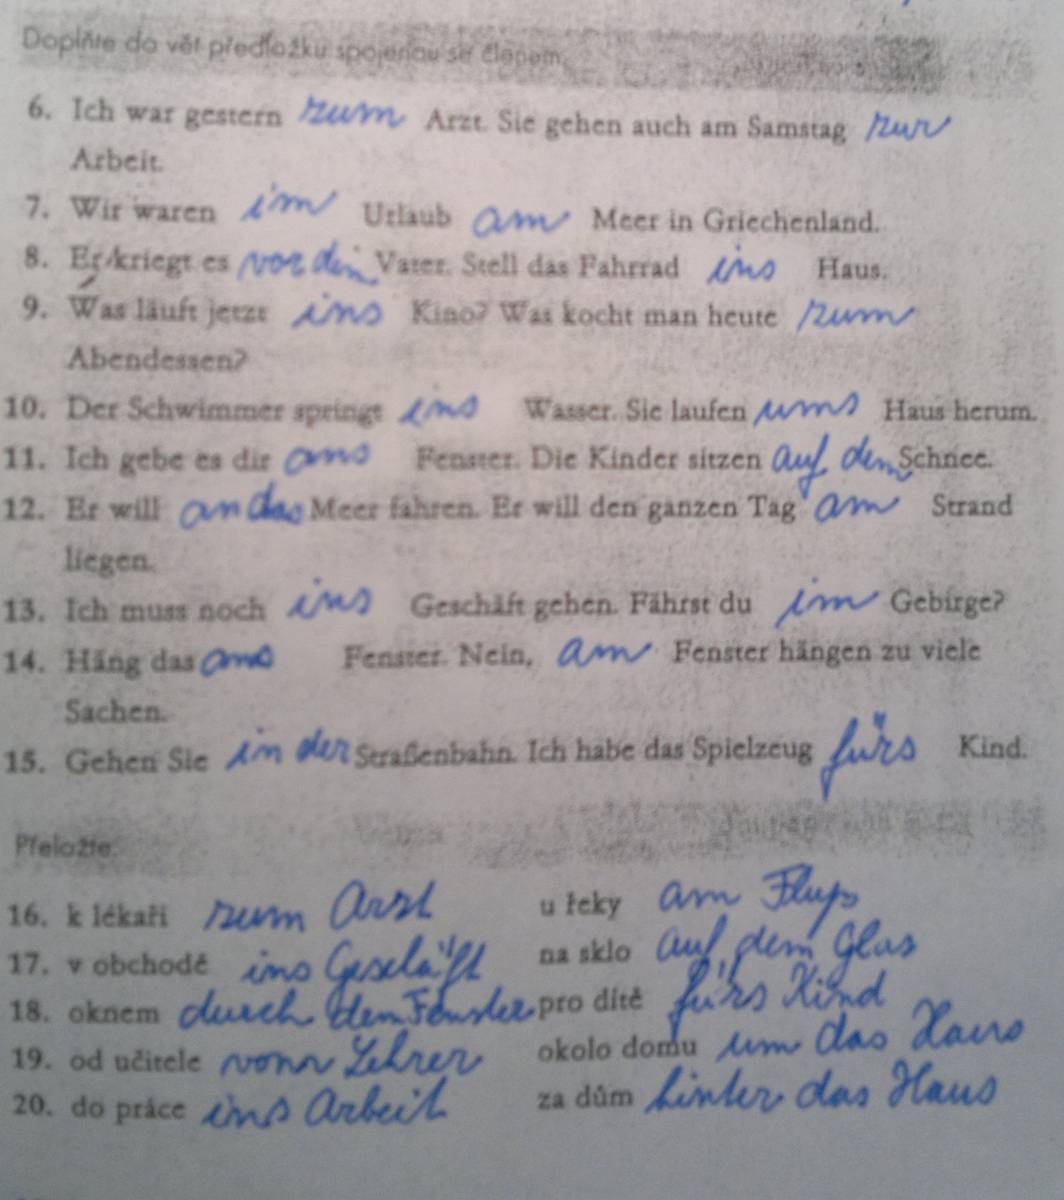 Doplňte do vět předložku spojenou se členem.
6. Ich war gestern zum Arzt. Sie gehen auch am Samstag zur
Arbeit.
7. Wir waren im Urlaub am Meer in Griechenland.
8. Er kriegt es von dem Vater. Stell das Fahrrad ins Haus.
9. Was läuft jetzt ins Kino? Was kocht man heute zum
Abendessen?
10. Der Schwimmer springt ins Wasser. Sie laufen ums Haus herum.
11. Ich gebe es dir ans Fenster. Die Kinder sitzen auf dem Schnee.
12. Er will an das Meer fahren. Er will den ganzen Tag am Strand
liegen.
13. Ich muss noch ins Geschäft gehen. Fährst du im Gebirge?
14. Häng das ans Fenster. Nein, am Fenster hängen zu viele
Sachen.
15. Gehen Sie in der Straßenbahn. Ich habe das Spielzeug fürs Kind.
Přeložte.
16. k lékaři zum Arzt u řeky am Fluß
17. v obchodě ins Geschäft na sklo auf dem Glas
18. oknem durch dem Fenster pro dítě fürs Kind
19. od učitele vom Lehrer okolo domu um das Haus
20. do práce ins Arbeit za dům hinter das Haus